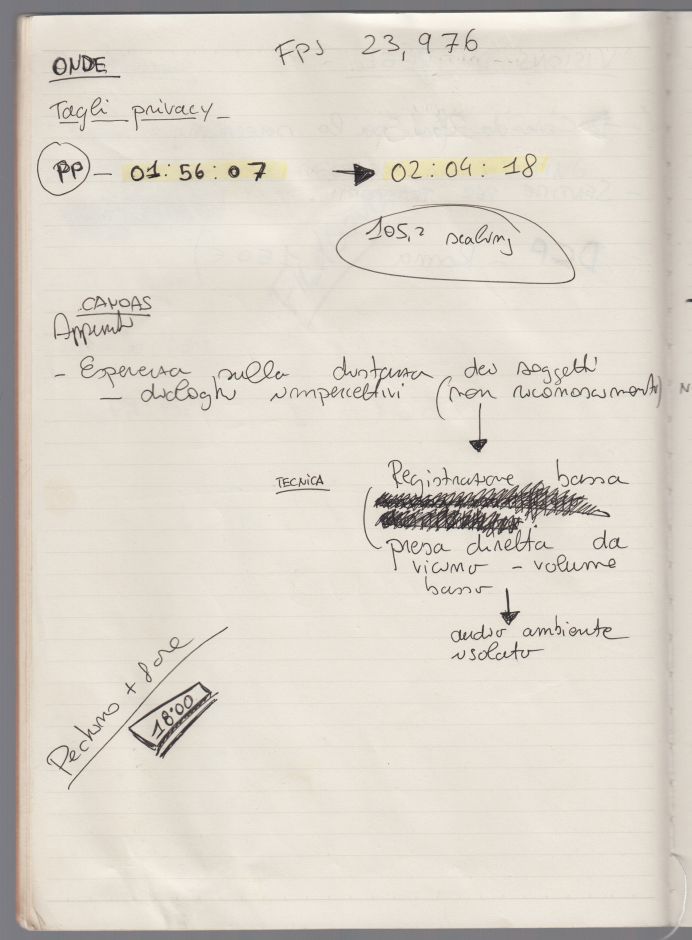 FPS 23,976
ONDE
Tagli privacy
PP - 01:56:07 → 02:04:18
105,2 scaling
CANOAS
Appunti
- Esperienza sulla distanza dei soggetti
- dialoghi impercettivi (non riconoscimento)
TECNICA
Registrazione bassa
presa diretta da
vicino - volume
basso
audio ambiente
isolato
Pechino + 8 ore
18:00